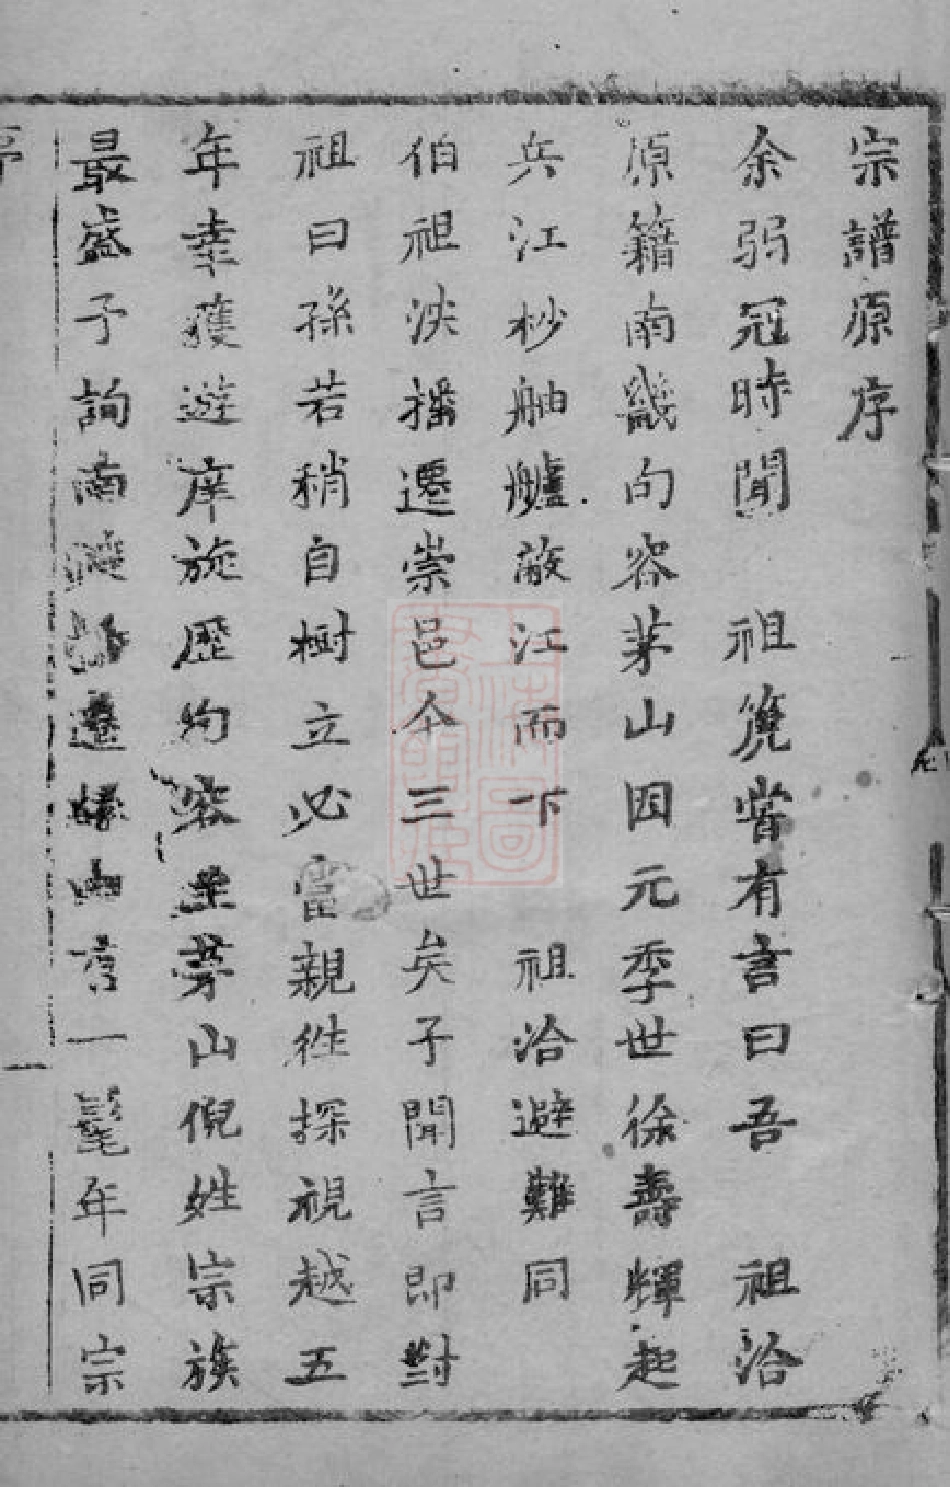 宗譜原序
余弱冠時聞　祖箎嘗有言曰吾　祖洽
原籍南畿句容茅山因元季世徐壽輝起
兵江杪舳艫蔽江而下　祖洽避難同
伯祖泱播遷崇邑今三世矣子聞言即對
祖曰孫若稍自樹立必當親徃探視越五
年幸獲遊庠旋歷句容至茅山倪姓宗族
最盛予詢南遷山言一髦年同宗
序
一